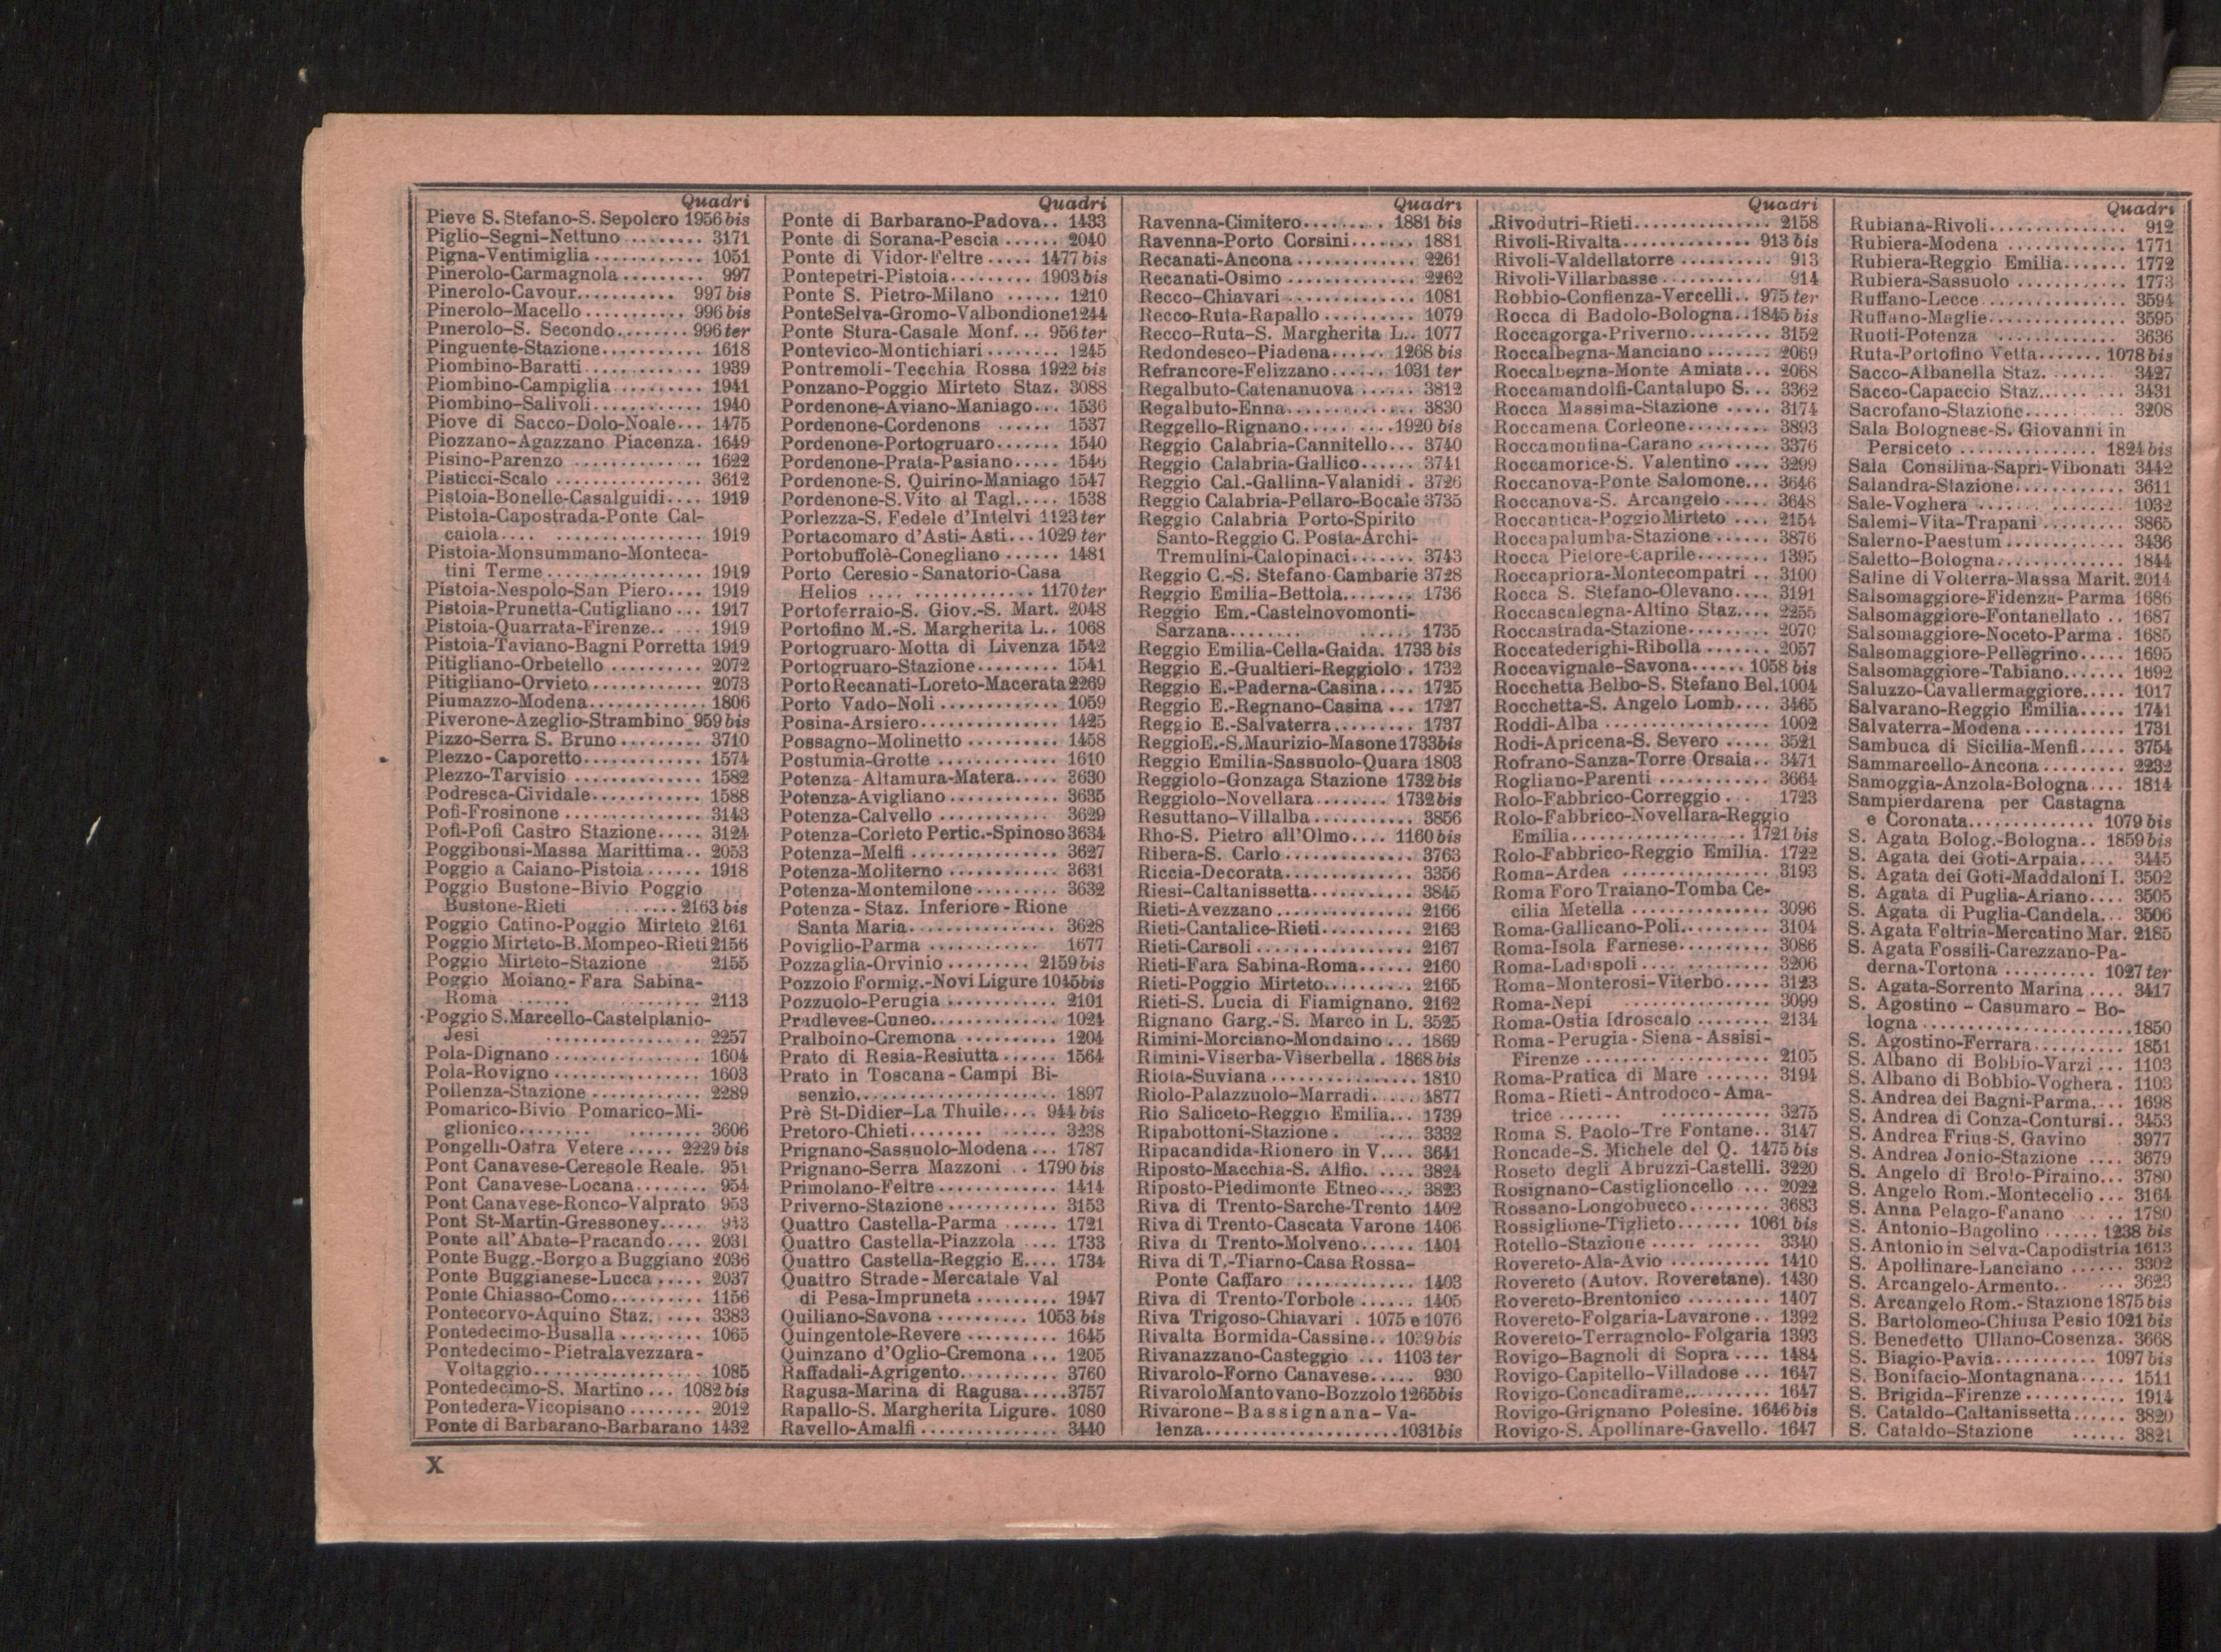 Quadri
Pieve S. Stefano-S. Sepolcro 1956 bis
Piglio-Segni-Nettuno ......... 3171
Pigna-Ventimiglia ............ 1051
Pinerolo-Carmagnola ......... 997
Pinerolo-Cavour........... 997 bis
Pinerolo-Macello ........... 996 bis
Pinerolo-S. Secondo........ 996 ter
Pinguente-Stazione........... 1618
Piombino-Baratti............. 1939
Piombino-Campiglia .......... 1941
Piombino-Salivoli............ 1940
Piove di Sacco-Dolo-Noale... 1475
Piozzano-Agazzano Piacenza. 1649
Pisino-Parenzo .............. 1622
Pisticci-Scalo ................ 3612
Pistoia-Bonelle-Casalguidi.... 1919
Pistoia-Capostrada-Ponte Cal-
caiola.... ................ 1919
Pistoia-Monsummano-Monteca-
tini Terme................. 1919
Pistoia-Nespolo-San Piero.... 1919
Pistoia-Prunetta-Cutigliano ... 1917
Pistoia-Quarrata-Firenze.. ... 1919
Pistoia-Taviano-Bagni Porretta 1919
Pitigliano-Orbetello .......... 2072
Pitigliano-Orvieto............ 2073
Piumazzo-Modena............ 1806
Piverone-Azeglio-Strambino 959 bis
Pizzo-Serra S. Bruno......... 3710
Plezzo-Caporetto............. 1574
Plezzo-Tarvisio .............. 1582
Podresca-Cividale............ 1588
Pofi-Frosinone ............... 3143
Pofi-Pofi Castro Stazione..... 3124
Poggibonsi-Massa Marittima.. 2053
Poggio a Caiano-Pistoia...... 1918
Poggio Bustone-Bivio Poggio
Bustone-Rieti .......2163 bis
Poggio Catino-Poggio Mirteto 2161
Poggio Mirteto-B.Mompeo-Rieti 2156
Poggio Mirteto-Stazione 2155
Poggio Moiano-Fara Sabina-
Roma ...... ......... 2113
Poggio S.Marcello-Castelplanio-
Jesi ................. 2257
Pola-Dignano ................ 1604
Pola-Rovigno ................ 1603
Pollenza-Stazione ............ 2289
Pomarico-Bivio Pomarico-Mi-
glionico........ ........ 3606
Pongelli-Ostra Vetere ..... 2229 bis
Pont Canavese-Ceresole Reale. 951
Pont Canavese-Locana........ 954
Pont Canavese-Ronco-Valprato 953
Pont St-Martin-Gressoney..... 943
Ponte all'Abate-Pracando.... 2031
Ponte Bugg.-Borgo a Buggiano 2036
Ponte Buggianese-Lucca ..... 2037
Ponte Chiasso-Como.......... 1156
Pontecorvo-Aquino Staz. .... 3383
Pontedecimo-Busalla ......... 1065
Pontedecimo-Pietralavezzara-
Voltaggio.................. 1085
Pontedecimo-S. Martino ... 1082 bis
Pontedera-Vicopisano ........ 2012
Ponte di Barbarano-Barbarano 1432
X
Quadri
Ponte di Barbarano-Padova.. 1433
Ponte di Sorana-Pescia ...... 2040
Ponte di Vidor-Feltre ..... 1477 bis
Pontepetri-Pistoia......... 1903 bis
Ponte S. Pietro-Milano ...... 1210
PonteSelva-Gromo-Valbondione1244
Ponte Stura-Casale Monf... 956 ter
Pontevico-Montichiari ........ 1245
Pontremoli-Tecchia Rossa 1922 bis
Ponzano-Poggio Mirteto Staz. 3088
Pordenone-Aviano-Maniago... 1536
Pordenone-Cordenons ...... 1537
Pordenone-Portogruaro....... 1540
Pordenone-Prata-Pasiano..... 1546
Pordenone-S. Quirino-Maniago 1547
Pordenone-S.Vito al Tagl..... 1538
Porlezza-S. Fedele d'Intelvi 1123 ter
Portacomaro d'Asti-Asti... 1029 ter
Portobuffolè-Conegliano ...... 1481
Porto Ceresio-Sanatorio-Casa
Helios .... ............. 1170 ter
Portoferraio-S. Giov.-S. Mart. 2048
Portofino M.-S. Margherita L.. 1068
Portogruaro-Motta di Livenza 1542
Portogruaro-Stazione......... 1541
Porto Recanati-Loreto-Macerata 2269
Porto Vado-Noli ............. 1059
Posina-Arsiero............... 1425
Possagno-Molinetto .......... 1458
Postumia-Grotte ............. 1610
Potenza-Altamura-Matera..... 3630
Potenza-Avigliano............ 3635
Potenza-Calvello ............. 3629
Potenza-Corleto Pertic.-Spinoso 3634
Potenza-Melfi ................ 3627
Potenza-Moliterno ............ 3631
Potenza-Montemilone......... 3632
Potenza-Staz. Inferiore-Rione
Santa Maria................ 3628
Poviglio-Parma ............ 1677
Pozzaglia-Orvinio ......... 2159 bis
Pozzolo Formig.-Novi Ligure 1045bis
Pozzuolo-Perugia ............ 2101
Pradleves-Cuneo.............. 1024
Pralboino-Cremona .......... 1204
Prato di Resia-Resiutta ...... 1564
Prato in Toscana-Campi Bi-
senzio...................... 1897
Prè St-Didier-La Thuile.... 944 bis
Pretoro-Chieti........ ...... 3238
Prignano-Sassuolo-Modena ... 1787
Prignano-Serra Mazzoni .. 1790 bis
Primolano-Feltre ............. 1414
Priverno-Stazione............ 3153
Quattro Castella-Parma ...... 1721
Quattro Castella-Piazzola .... 1733
Quattro Castella-Reggio E.... 1734
Quattro Strade-Mercatale Val
di Pesa-Impruneta ......... 1947
Quiliano-Savona ........... 1053 bis
Quingentole-Revere .......... 1645
Quinzano d'Oglio-Cremona ... 1205
Raffadali-Agrigento........... 3760
Ragusa-Marina di Ragusa.....3757
Rapallo-S. Margherita Ligure. 1080
Ravello-Amalfi ............... 3440
Quadri
Ravenna-Cimitero......... 1881 bis
Ravenna-Porto Corsini....... 1881
Recanati-Ancona ............. 2261
Recanati-Osimo .............. 2262
Recco-Chiavari .............. 1081
Recco-Ruta-Rapallo .......... 1079
Recco-Ruta-S. Margherita L.. 1077
Redondesco-Piadena...... 1268 bis
Refrancore-Felizzano...... 1031 ter
Regalbuto-Catenanuova ...... 3812
Regalbuto-Enna.............. 3830
Reggello-Rignano..... ....1920 bis
Reggio Calabria-Cannitello... 3740
Reggio Calabria-Gallico...... 3741
Reggio Cal.-Gallina-Valanidi . 3726
Reggio Calabria-Pellaro-Bocale 3735
Reggio Calabria Porto-Spirito
Santo-Reggio C. Posta-Archi-
Tremulini-Calopinaci....... 3743
Reggio C.-S. Stefano-Cambarie 3728
Reggio Emilia-Bettola........ 1736
Reggio Em.-Castelnovomonti-
Sarzana........ ...... 1735
Reggio Emilia-Cella-Gaida. 1733 bis
Reggio E.-Gualtieri-Reggiolo . 1732
Reggio E.-Paderna-Casina.... 1725
Reggio E.-Regnano-Casina ... 1727
Reggio E.-Salvaterra......... 1737
ReggioE.-S.Maurizio-Masone1733bis
Reggio Emilia-Sassuolo-Quara 1803
Reggiolo-Gonzaga Stazione 1732 bis
Reggiolo-Novellara........ 1732 bis
Resuttano-Villalba........... 3856
Rho-S. Pietro all'Olmo.... 1160 bis
Ribera-S. Carlo ............. 3763
Riccia-Decorata.............. 3356
Riesi-Caltanissetta........... 3845
Rieti-Avezzano............... 2166
Rieti-Cantalice-Rieti.......... 2163
Rieti-Carsoli ................. 2167
Rieti-Fara Sabina-Roma...... 2160
Rieti-Poggio Mirteto.......... 2165
Rieti-S. Lucia di Fiamignano. 2162
Rignano Garg.-S. Marco in L. 3525
Rimini-Morciano-Mondaino ... 1869
Rimini-Viserba-Viserbella . 1868 bis
Riola-Suviana ................ 1810
Riolo-Palazzuolo-Marradi..... 1877
Rio Saliceto-Reggio Emilia... 1739
Ripabottoni-Stazione. .... 3332
Ripacandida-Rionero in V.... 3641
Riposto-Macchia-S. Alfio. .... 3824
Riposto-Piedimonte Etneo.... 3823
Riva di Trento-Sarche-Trento 1402
Riva di Trento-Cascata Varone 1406
Riva di Trento-Molveno...... 1404
Riva di T.-Tiarno-Casa Rossa-
Ponte Caffaro ............. 1403
Riva di Trento-Torbole ...... 1405
Riva Trigoso-Chiavari . 1075 e 1076
Rivalta Bormida-Cassine.. 1039 bis
Rivanazzano-Casteggio ... 1103 ter
Rivarolo-Forno Canavese..... 930
RivaroloMantovano-Bozzolo 1265bis
Rivarone-Bassignana-Va-
lenza.....................1031bis
Quadri
Rivodutri-Rieti............... 2158
Rivoli-Rivalta.............. 913 bis
Rivoli-Valdellatorre .......... 913
Rivoli-Villarbasse ............ 914
Robbio-Confienza-Vercelli.. 975 ter
Rocca di Badolo-Bologna..1845 bis
Roccagorga-Priverno......... 3152
Roccalbegna-Manciano ....... 2069
Roccalbegna-Monte Amiata... 2068
Roccamandolfi-Cantalupo S... 3362
Rocca Massima-Stazione ..... 3174
Roccamena Corleone......... 3893
Roccamonfina-Carano ........ 3376
Roccamorice-S. Valentino .... 3299
Roccanova-Ponte Salomone... 3646
Roccanova-S. Arcangelo ..... 3648
Roccantica-Poggio Mirteto .... 2154
Roccapalumba-Stazione ...... 3876
Rocca Pietore-Caprile........ 1395
Roccapriora-Montecompatri .. 3100
Rocca S. Stefano-Olevano.... 3191
Roccascalegna-Altino Staz.... 2255
Roccastrada-Stazione......... 2070
Roccatederighi-Ribolla....... 2057
Roccavignale-Savona...... 1058 bis
Rocchetta Belbo-S. Stefano Bel.1004
Rocchetta-S. Angelo Lomb.... 3465
Roddi-Alba ................. 1002
Rodi-Apricena-S. Severo ..... 3521
Rofrano-Sanza-Torre Orsaia.. 3471
Rogliano-Parenti ............ 3664
Rolo-Fabbrico-Correggio... 1723
Rolo-Fabbrico-Novellara-Reggio
Emilia................... 1721 bis
Rolo-Fabbrico-Reggio Emilia. 1722
Roma-Ardea ................ 3193
Roma Foro Traiano-Tomba Ce-
cilia Metella ............... 3096
Roma-Gallicano-Poli.......... 3104
Roma-Isola Farnese.......... 3086
Roma-Ladispoli .... ......... 3206
Roma-Monterosi-Viterbo..... 3123
Roma-Nepi ................ 3099
Roma-Ostia Idroscalo ........ 2134
Roma-Perugia-Siena-Assisi-
Firenze .................... 2105
Roma-Pratica di Mare ....... 3194
Roma-Rieti-Antrodoco-Ama-
trice ....... ............ 3275
Roma S. Paolo-Tre Fontane.. 3147
Roncade-S. Michele del Q. 1475 bis
Roseto degli Abruzzi-Castelli. 3220
Rosignano-Castiglioncello ... 2022
Rossano-Longobucco......... 3683
Rossiglione-Tiglieto....... 1061 bis
Rotello-Stazione ..... ...... 3340
Rovereto-Ala-Avio ........... 1410
Rovereto (Autov. Roveretane). 1430
Rovereto-Brentonico ......... 1407
Rovereto-Folgaria-Lavarone .. 1392
Rovereto-Terragnolo-Folgaria 1393
Rovigo-Bagnoli di Sopra .... 1484
Rovigo-Capitello-Villadose ... 1647
Rovigo-Concadirame.......... 1647
Rovigo-Grignano Polesine. 1646 bis
Rovigo-S. Apollinare-Gavello. 1647
Quadri
Rubiana-Rivoli............... 912
Rubiera-Modena ............. 1771
Rubiera-Reggio Emilia....... 1772
Rubiera-Sassuolo ............ 1773
Ruffano-Lecce................ 3594
Ruffano-Maglie............... 3595
Ruoti-Potenza ............. 3636
Ruta-Portofino Vetta....... 1078 bis
Sacco-Albanella Staz. ...... 3427
Sacco-Capaccio Staz......... 3431
Sacrofano-Stazione........... 3208
Sala Bolognese-S. Giovanni in
Persiceto ................ 1824 bis
Sala Consilina-Sapri-Vibonati 3442
Salandra-Stazione............ 3611
Sale-Voghera ............. 1032
Salemi-Vita-Trapani ......... 3865
Salerno-Paestum ............. 3436
Saletto-Bologna.............. 1844
Saline di Volterra-Massa Marit. 2014
Salsomaggiore-Fidenza-Parma 1686
Salsomaggiore-Fontanellato .. 1687
Salsomaggiore-Noceto-Parma . 1685
Salsomaggiore-Pellegrino..... 1695
Salsomaggiore-Tabiano....... 1692
Saluzzo-Cavallermaggiore..... 1017
Salvarano-Reggio Emilia..... 1741
Salvaterra-Modena ........... 1731
Sambuca di Sicilia-Menfi..... 3754
Sammarcello-Ancona ......... 2232
Samoggia-Anzola-Bologna.... 1814
Sampierdarena per Castagna
e Coronata.............. 1079 bis
S. Agata Bolog.-Bologna.. 1859 bis
S. Agata dei Goti-Arpaia.... 3445
S. Agata dei Goti-Maddaloni I. 3502
S. Agata di Puglia-Ariano.... 3505
S. Agata di Puglia-Candela... 3506
S. Agata Feltria-Mercatino Mar. 2185
S. Agata Fossili-Carezzano-Pa-
derna-Tortona .......... 1027 ter
S. Agata-Sorrento Marina .... 3417
S. Agostino - Casumaro - Bo-
logna .......................1850
S. Agostino-Ferrara.......... 1851
S. Albano di Bobbio-Varzi ... 1103
S. Albano di Bobbio-Voghera . 1103
S. Andrea dei Bagni-Parma.... 1698
S. Andrea di Conza-Contursi.. 3453
S. Andrea Frius-S. Gavino 3977
S. Andrea Jonio-Stazione .... 3679
S. Angelo di Brolo-Piraino... 3780
S. Angelo Rom.-Montecelio ... 3164
S. Anna Pelago-Fanano ..... 1780
S. Antonio-Bagolino ...... 1238 bis
S. Antonio in Selva-Capodistria 1613
S. Apollinare-Lanciano ...... 3302
S. Arcangelo-Armento.. ... 3623
S. Arcangelo Rom.-Stazione 1875 bis
S. Bartolomeo-Chiusa Pesio 1021 bis
S. Benedetto Ullano-Cosenza. 3668
S. Biagio-Pavia........... 1097 bis
S. Bonifacio-Montagnana..... 1511
S. Brigida-Firenze ........... 1914
S. Cataldo-Caltanissetta...... 3820
S. Cataldo-Stazione ...... 3821